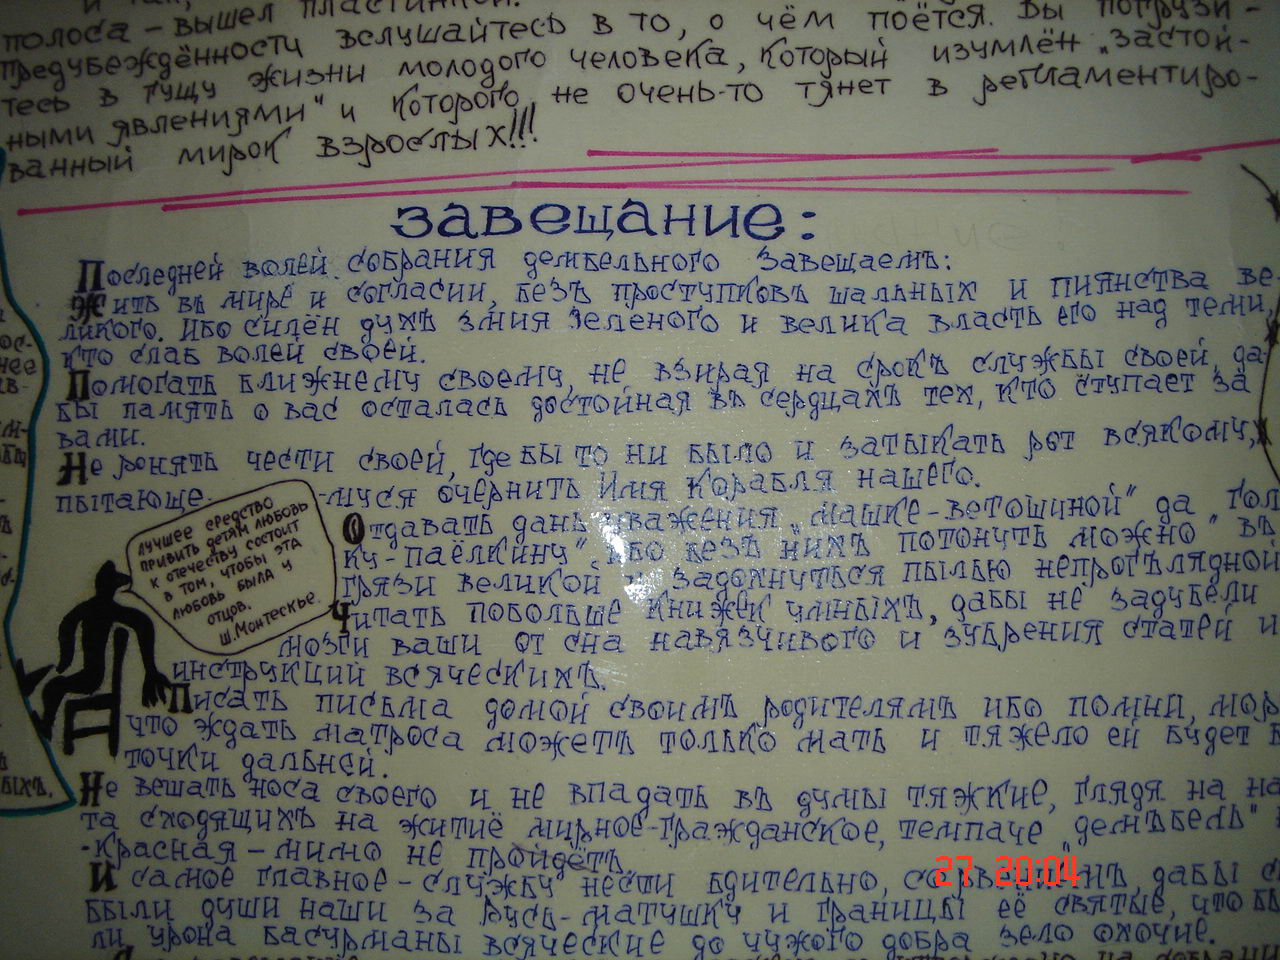 полоса – вышел пластинкой.
предубеждённости вслушайтесь в то, о чём поётся. Вы погрузи-
тесь в гущу жизни молодого человека, который изумлён „застой-
ными явлениями" и которого не очень-то тянет в регламентиро-
ванный мирок взрослых!!!
завещание:
Последней волей собрания дембельного завещаемъ:
Жить въ мире и согласии, безъ проступковъ шальных и пиянства ве-
ликого. Ибо силён духъ змия зеленого и велика власть его над теми,
кто слаб волей своей.
Помогать ближнему своему, не взирая на срокъ службы своей, да-
бы память о вас осталась достойная въ сердцахъ тех, кто ступает за
вами.
Не ронять чести своей, где бы то ни было и затыкать рот всякому,
пытающе- -муся очернить Имя Корабля нашего.
Отдавать дань уважения „машке-ветошиной" да
ку-паёлкину", ибо безъ нихъ потонуть можно въ
грязи великой и задохнуться пылью непроглядной
Читать побольше книжек умныхъ, дабы не задубели
мозги ваши от сна навязчивого и зубрения статей и
инструкций всяческихъ.
Писать письма домой своимъ родителямъ ибо помни,
что ждать матроса можетъ только мать и тяжело ей будет
точки дальней.
Не вешать носа своего и не впадать въ думы тяжкие, глядя на
та сходящихъ на житиё мирное-гражданское, темпаче „демъбель"
-красная – мимо не пройдётъ
И самое главное – службу нести бдительно, дабы
были души наши за Русь-матушку и границы её святые, что
ли урона басурманы всяческие до чужого добра зело охочие.
лучшее средство
привить детям любовь
к отечеству состоит
в том, чтобы эта
любовь была у
отцов.
Ш. Монтескье.
27 20:04